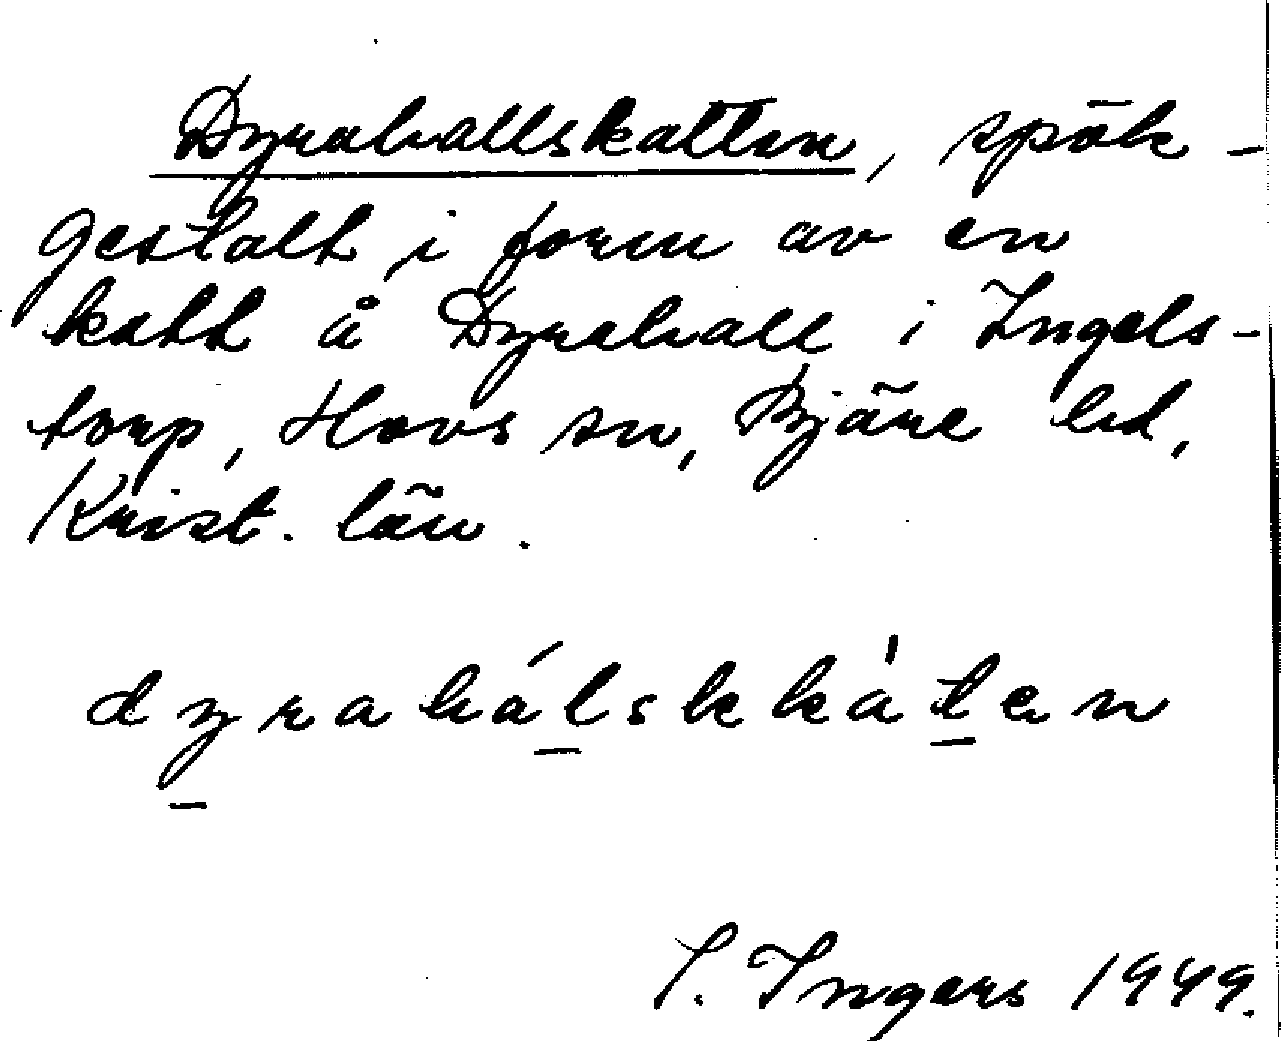 Dyrahallskatten, spök-
gestalt i form av en
katt å Dyrahall i Ingels-
torp, Hovs sn, Bjäre hd,
Krist. län.
dyrahálskkàten
I. Ingers 1949.